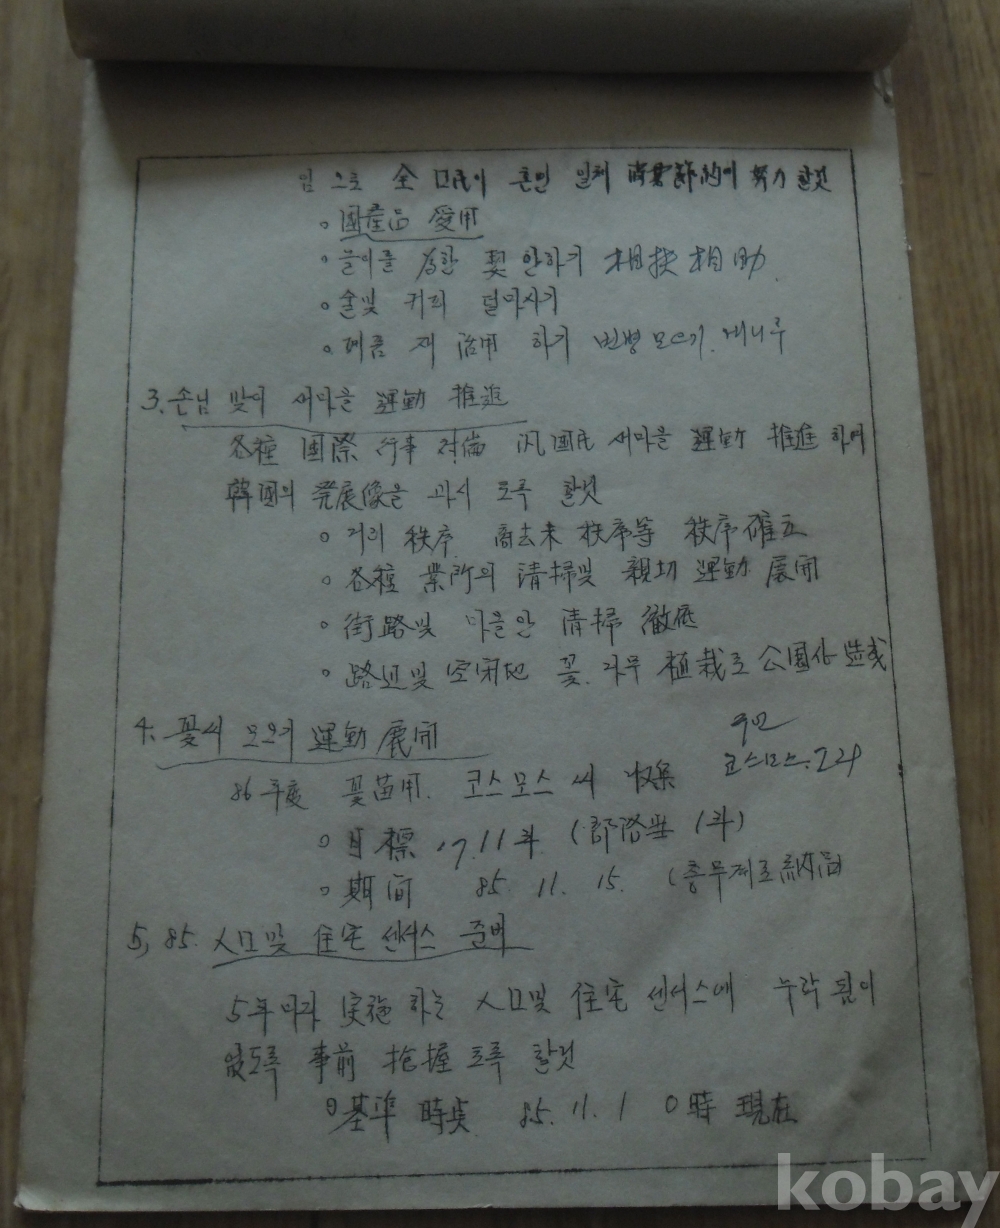 임으로 全 口民이 혼연 일체 消費節約에 努力 할것
◦ 國産品 愛用
◦ 놀이를 爲한 契 안하기 相扶相助
◦ 술및 커피 덜마시기
◦ 폐품 재 活用 하기 빈병 모으기.
3. 손님 맞이 새마을 運動 推進
各種 国際 行事 対備 汎国民 새마을 運動 推進 하여
韓国의 発展像을 과시 토록 할것
◦ 거리 秩序. 商去來 秩序等 秩序確立
◦ 各種 業所의 清掃및 親切 運動 展開
◦ 街路및 마을안 清掃 徹底
◦ 路辺및 空閑地 꽃.나무 植栽로 公園化 造成
4. 꽃씨 모으기 運動 展開
코스모스.
86年度 꽃苗用. 코스모스 씨 収集
◦ 目標 11斗 (部落当 1斗)
◦ 期间 85. 11. 15. (총무계로 納品)
5, 85. 人口및 住宅 센서스 준비
5年마다 実施 하는 人口및 住宅 센서스에 누락 됨이
없도록 事前 把握 토록 할것
◦ 基準 時点 85. 11. 1 0時 現在
kobay